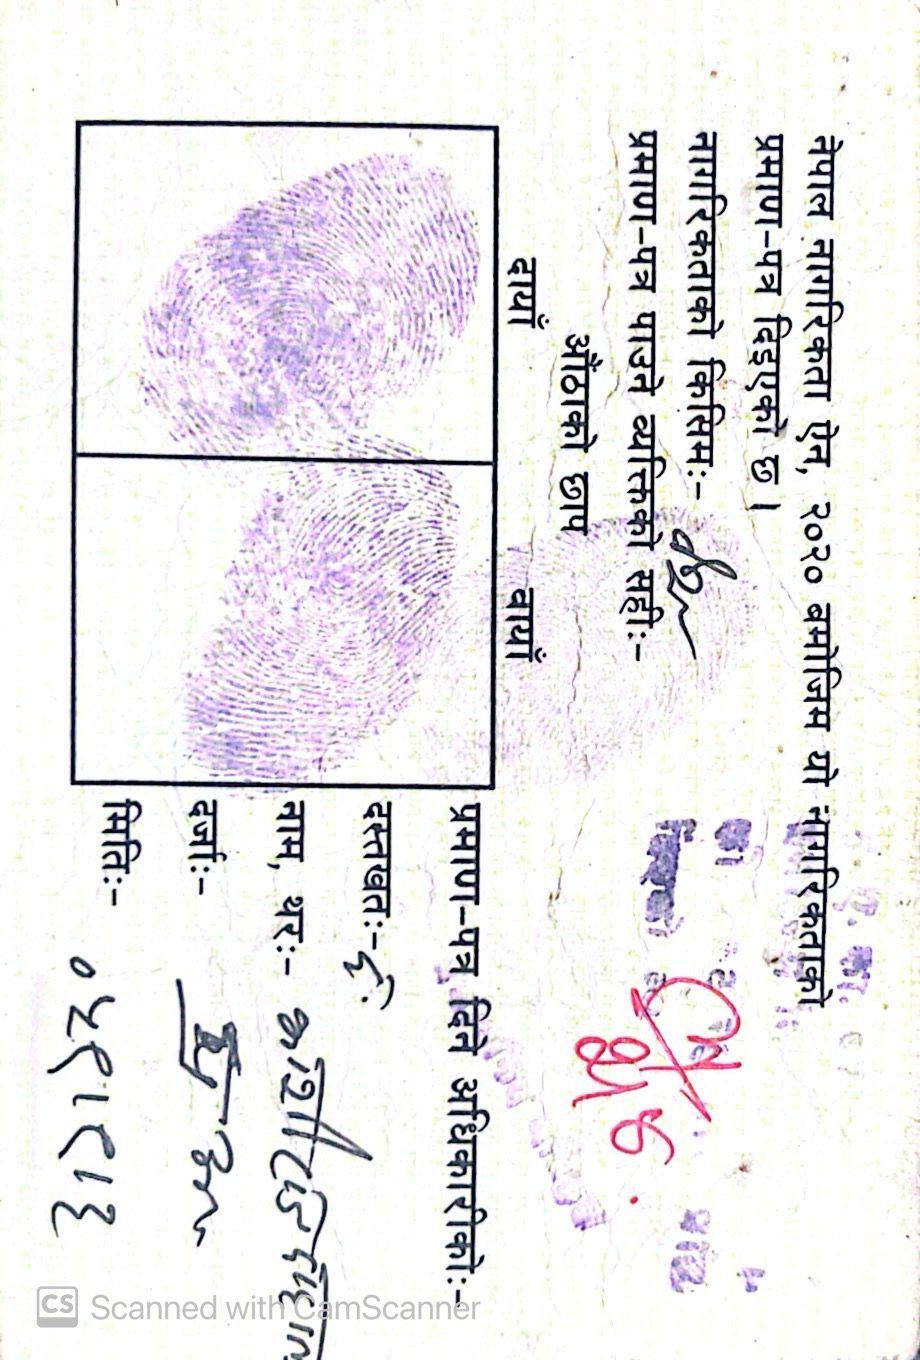 नेपाल नागरिकता ऐन, २०२० बमोजिम यो नागरिकताको
प्रमाण-पत्र दिइएको छ ।
नागरिकताको किसिमः-
प्रमाण-पत्र पाउने व्यक्तिको सहीः-
औंठाको छाप
दायाँ वायाँ
प्रमाण-पत्र दिने अधिकारीकोः-
दस्तखतः-
नाम, थरः- काशीराज दाहाल
दर्जाः-
मितिः- ०५९।९।३
Scanned with CamScanner
CS